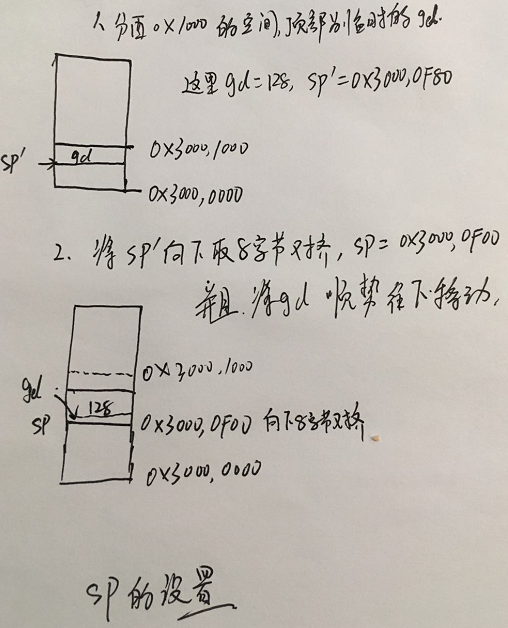 1、分配0X1000的空间,顶部为临时的gd.
这里gd=128, SP'=0X3000,0F80
0X3000,1000
gd
SP'
0X3000,0000
2、将SP'向下取8字节对齐, SP=0X3000,0F00
并且,将gd顺势往下移动,
0X3000,1000
gd
128
SP
0X3000,0F00 向下8字节对齐
0X3000,0000
SP的设置